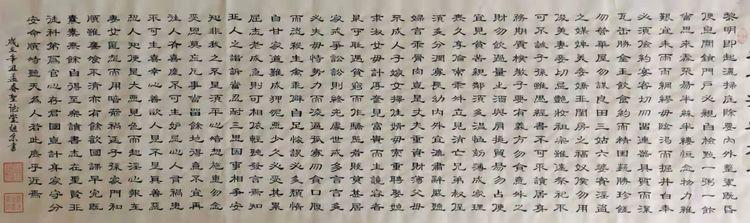 黎明即起灑掃庭除要內外整潔既昏
便息關鎖門戶必親自檢點一粥一飯
當思來處不易半絲半縷恒念物力維
艱宜未雨而綢繆毋臨渴而掘井自奉
必須儉約宴客切勿留連器具質而潔
瓦缶勝金玉飲食約而精園蔬勝珍饈
勿營華屋勿謀良田三姑六婆實淫盜
之媒婢美妾嬌非閨房之福奴僕勿用
俊美妻妾切忌艷妝祖宗雖遠祭祀不
可不誠子孫雖愚經書不可不讀居身
務期質樸教子要有義方勿貪意外之
財勿飲過量之酒與肩挑貿易勿佔便
宜見貧苦親鄰須多溫恤刻薄成家理
無久享倫常乖舛立見消亡兄弟叔侄
須多分潤寡長幼內外宜法肅辭嚴聽
婦言乖骨肉豈是丈夫重資財薄父母
不成人子嫁女擇佳婿毋索重聘娶媳
求淑女毋計厚奩見富貴而生讒容者
最可恥遇貧窮而作驕態者賤莫甚居
家戒爭訟訟則終凶處世戒多言言多
必失毋恃勢力而凌逼孤寡勿貪口腹
而恣殺生禽乖僻自是悔誤必多頹惰
自甘家道難成狎昵惡少久必受其累
屈志老成急則可相依輕聽發言安知
非人之譖訴當忍耐三思因事相爭安
知非我之不是須平心暗想施惠勿念
受恩莫忘凡事當留餘地得意不宜再
往人有喜慶不可生妒忌心人有禍患
不可生喜幸心善欲人見不是真善惡
恐人知便是大惡見色而起淫心報在
妻女匿怨而用暗箭禍延子孫家門和
順雖饔飧不濟亦有餘歡國課早完即
囊橐無餘自得至樂讀書志在聖賢非
徒科第為官心存君國豈計身家守分
安命順時聽天為人若此庶乎近焉